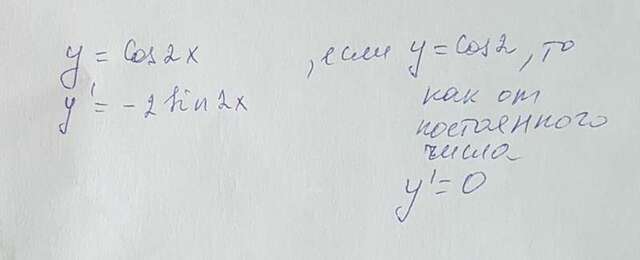 y = cos2x
y' = -2 sin2x
, если y = cos2, то
как от
постоянного
числа
y' = 0